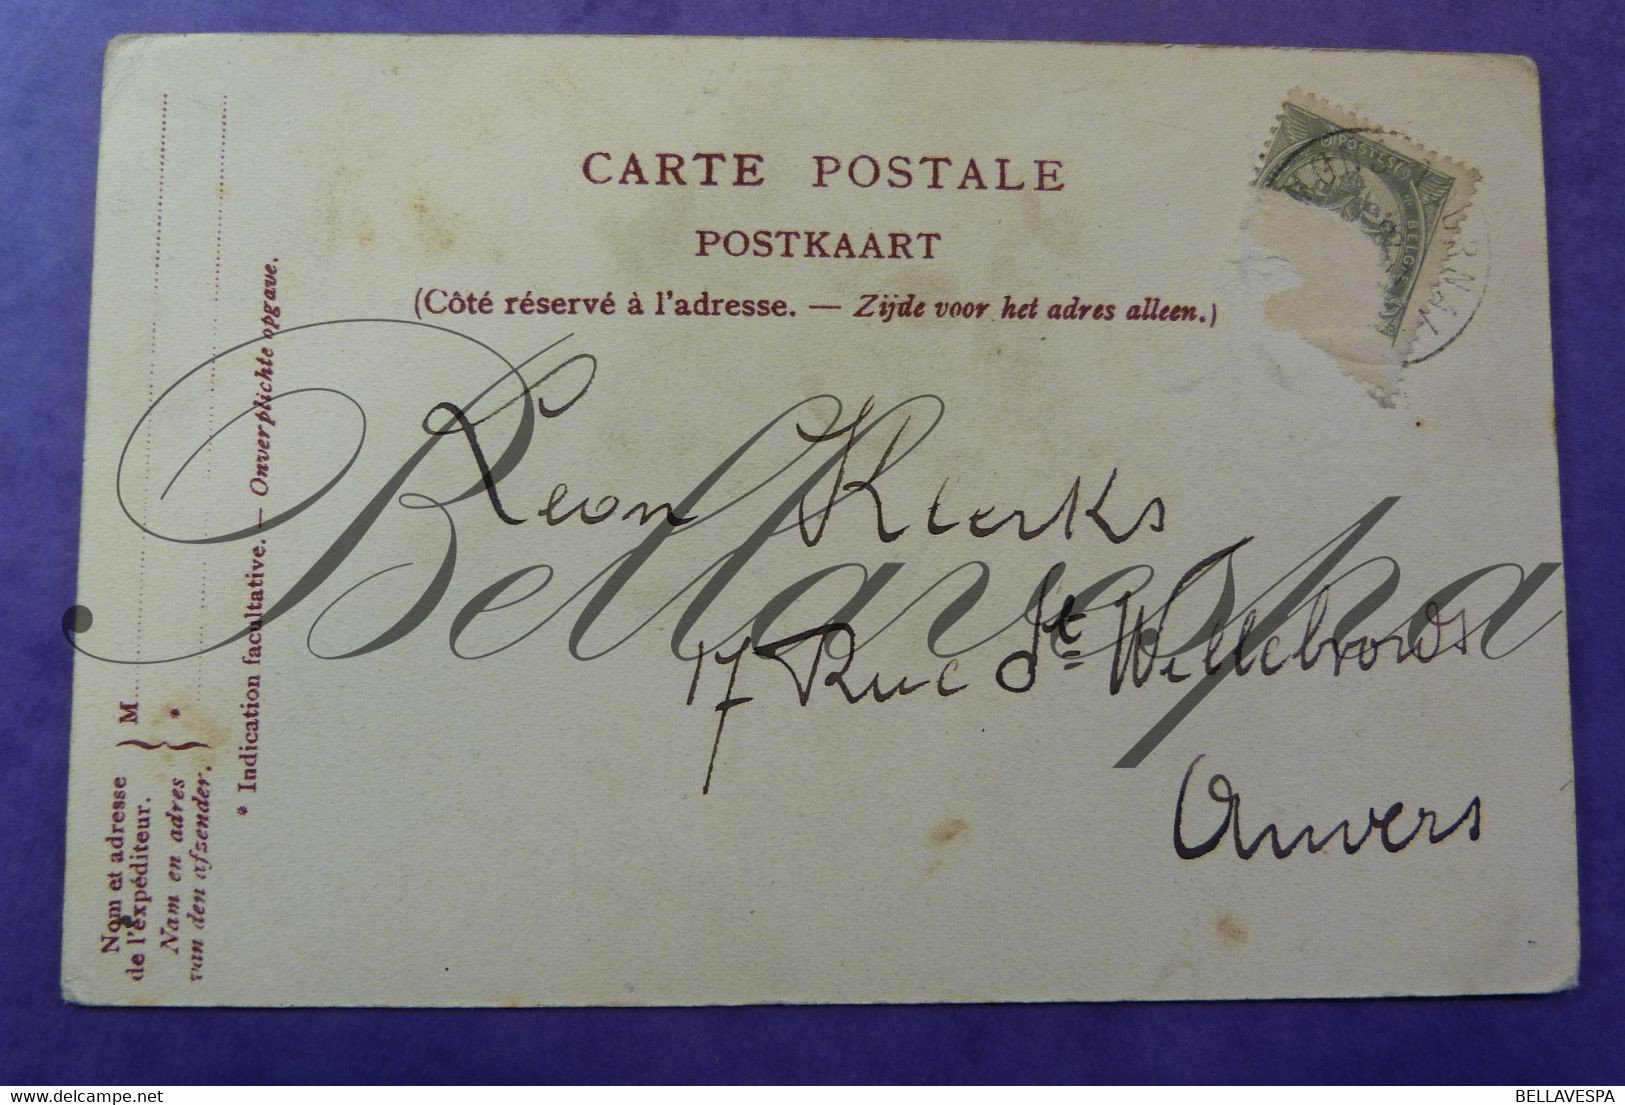 CARTE POSTALE
POSTKAART
(Côté réservé à l'adresse. — Zijde voor het adres alleen.)
POSTES
BELGI
Leon Klerks
17 Rue St Willebrords
Anvers
Bellavespa
* Indication facultative. — Onverplichte opgave.
M
*
Nom et adresse
de l'expéditeur.
Nam en adres
van den afsender.
delcampe.net
BELLAVESPA